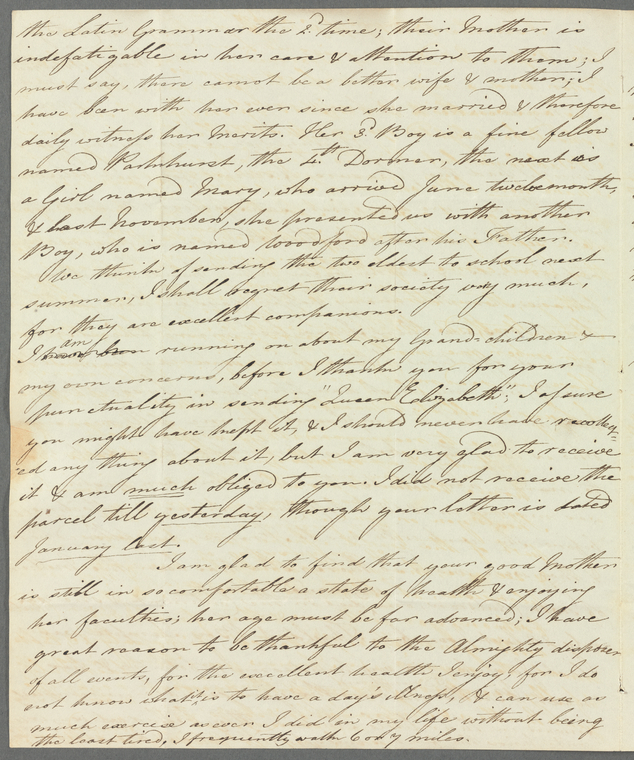 the Latin Grammar the 2d time; their Mother is
indefatigable in her care & attention to them; I
must say, there cannot be a better wife & mother; I
have been with her ever since she married & therefore
daily witness her merits. Her 3d. Boy is a fine fellow
named Parkhurst, the 4th Dormer, the next is
a Girl named Mary, who arrived June twelvemonth,
& last November, she presented us with another
Boy, who is named Woodford after his Father.
We think of sending the two eldest to school next
summer, I shall regret their society very much,
for they are excellent companions.
I am running on about my Grand-children &
my own concerns, before I thank you for your
punctuality in sending "Queen Elizabeth"; I assure
you might have kept it, & I should never have recollect-
ed any thing about it, but I am very glad to receive
it & am much obliged to you. I did not receive the
parcel till yesterday, though your letter is dated
January last.
I am glad to find that your good Mother
is still in so comfortable a state of health & enjoying
her faculties; her age must be far advanced; I have
great reason to be thankful to the Almighty disposer
of all events, for the excellent health I enjoy, for I do
not know what it is to have a day's illness, & can use as
much exercise as ever I did in my life without being
the least tired, I frequently walk 6 or 7 miles.